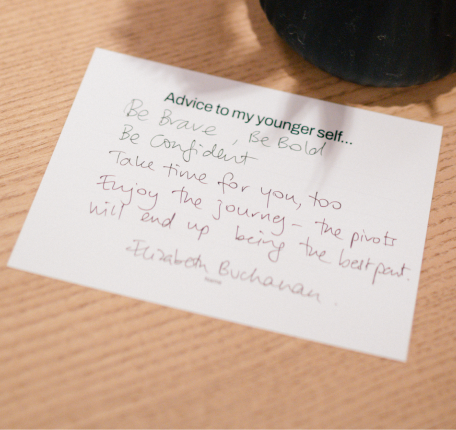 Advice to my younger self...
Be Brave, Be Bold
Be Confident
Take time for you, too
Enjoy the journey – the pivots
will end up being the best part.
-Elizabeth Buchanan.